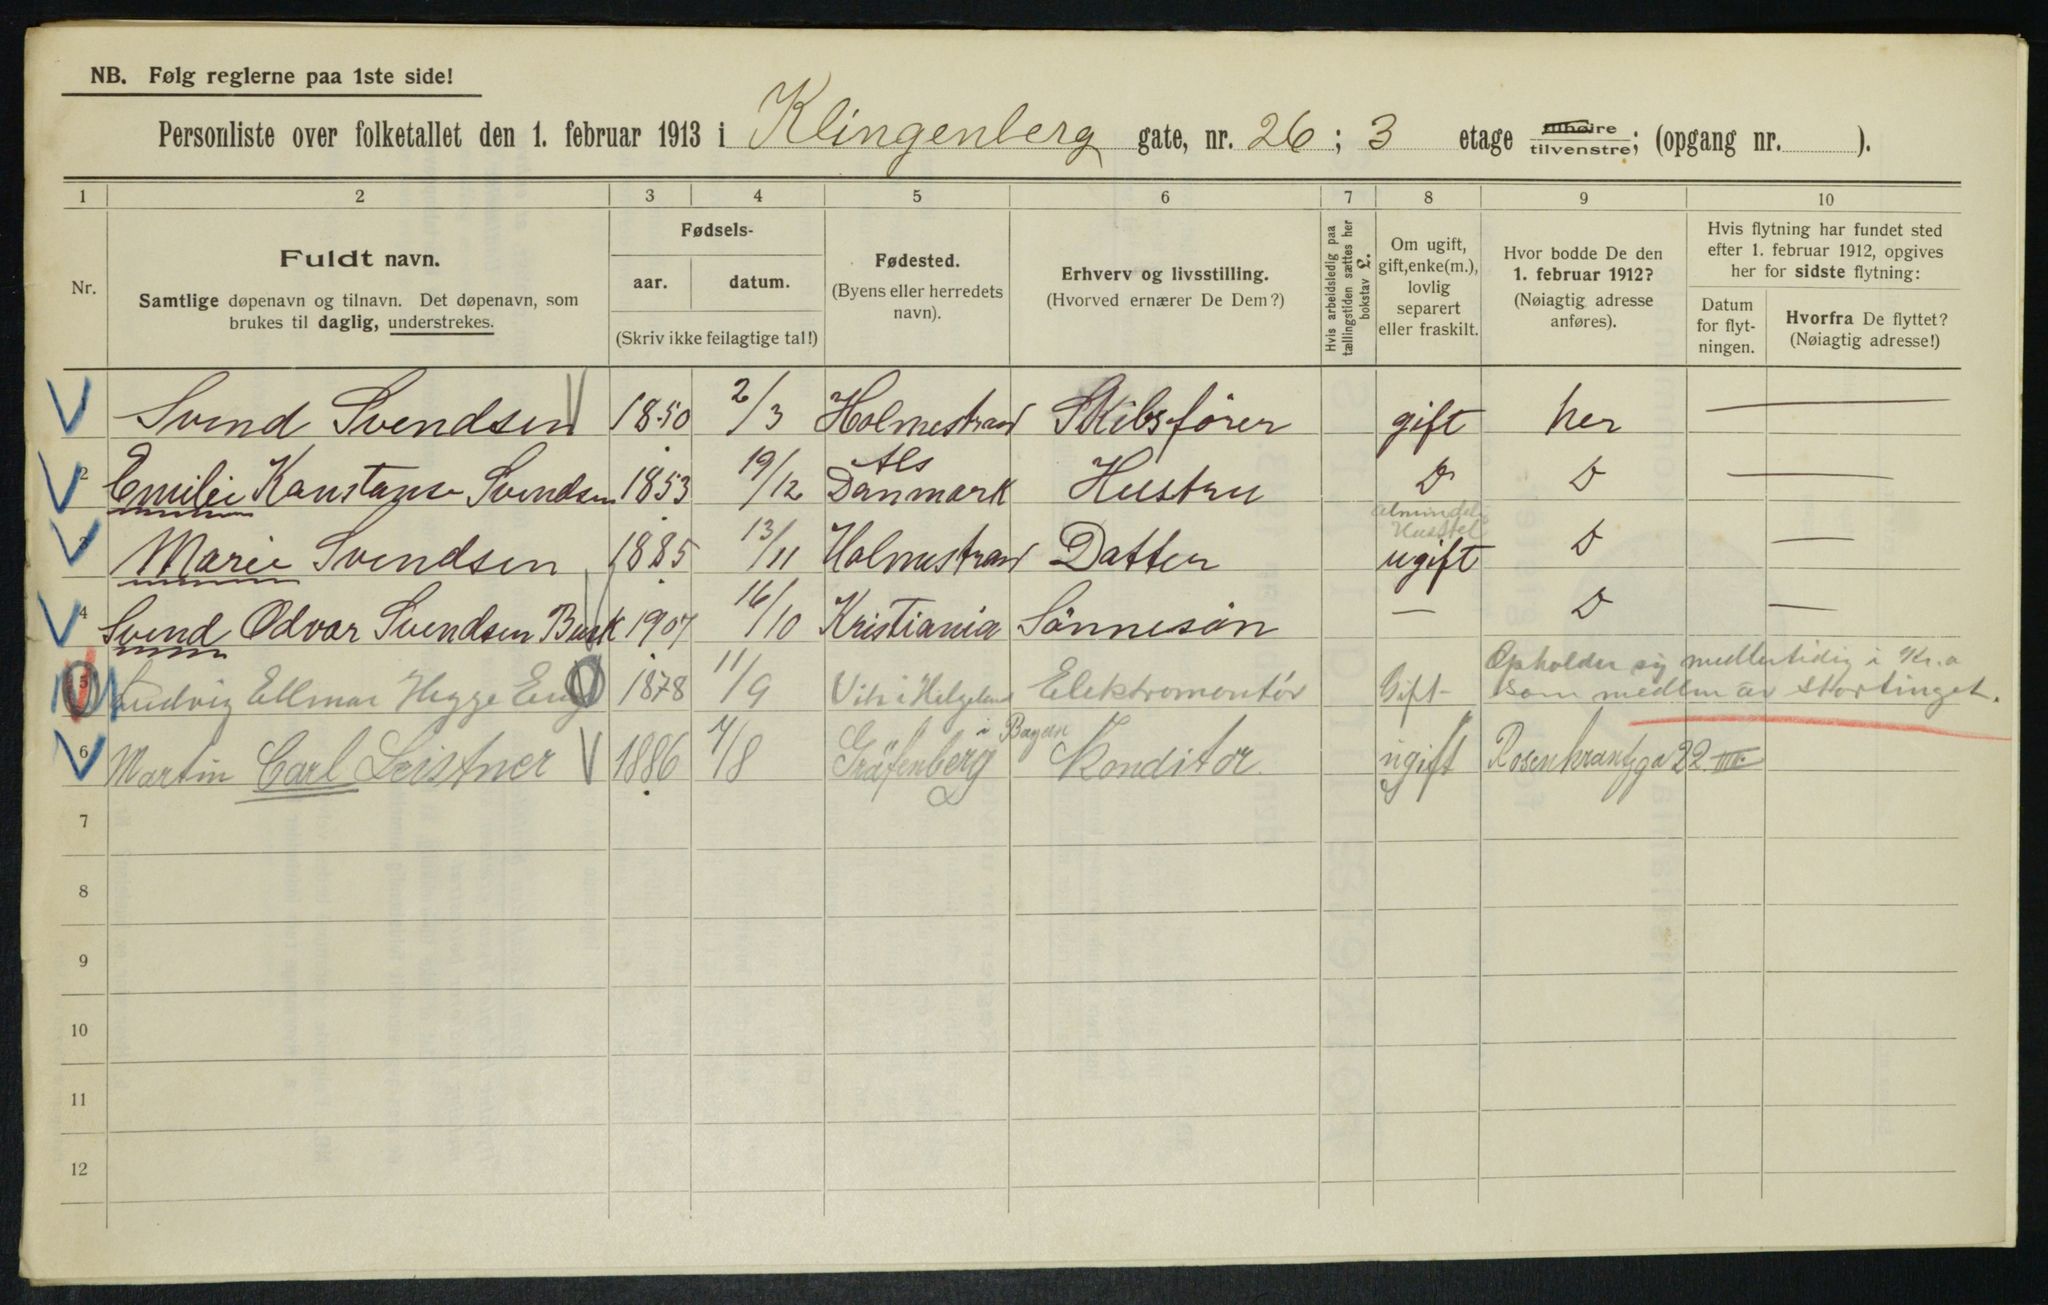 NB. Følg reglerne paa 1ste side!
Personliste over folketallet den 1. februar 1913 i Klingenberg gate, nr. 26; 3 etage tilhøire tilvenstre; (opgang nr. ).
1 2 3 4 5 6 7 8 9 10
Nr.
Fuldt navn.
Samtlige døpenavn og tilnavn. Det døpenavn, som
brukes til daglig, understrekes.
Fødsels-
aar. datum.
(Skriv ikke feilagtige tal!)
Fødested.
(Byens eller herredets
navn).
Erhverv og livsstilling.
(Hvorved ernærer De Dem?)
Hvis arbeidsledig paa
tællingstiden sættes her
bokstav L.
Om ugift,
gift, enke(m.),
lovlig
separert
eller fraskilt.
Hvor bodde De den
1. februar 1912?
(Nøiagtig adresse
anføres).
Hvis flytning har fundet sted
efter 1. februar 1912, opgives
her for sidste flytning:
Datum
for flyt-
ningen.
Hvorfra De flyttet?
(Nøiagtig adresse!)
Svend Svendsen 1850 2/3 Holmestrand Skibsfører gift her —
2 Emilie Konstanse Svendsen 1853 19/12 Als Danmark Hustru D D —
almindelig
Husstel
3 Marie Svendsen 1885 13/11 Holmestrand Datter ugift D —
4 Svend Odvar Svendsen Busk 1907 16/10 Kristiania Sønnesøn — D —
5 Ludvig Ellmar Hegge 1878 11/9 i Helgeland Elektromontør Gift Opholder sig midlertidig i Kr.a
som medlem av stortinget.
6 Martin Carl Leistner 1886 4/8 Gräfenberg i Bayern Konditor ugift Rosenkrantzga 22 III
7
8
9
10
11
12